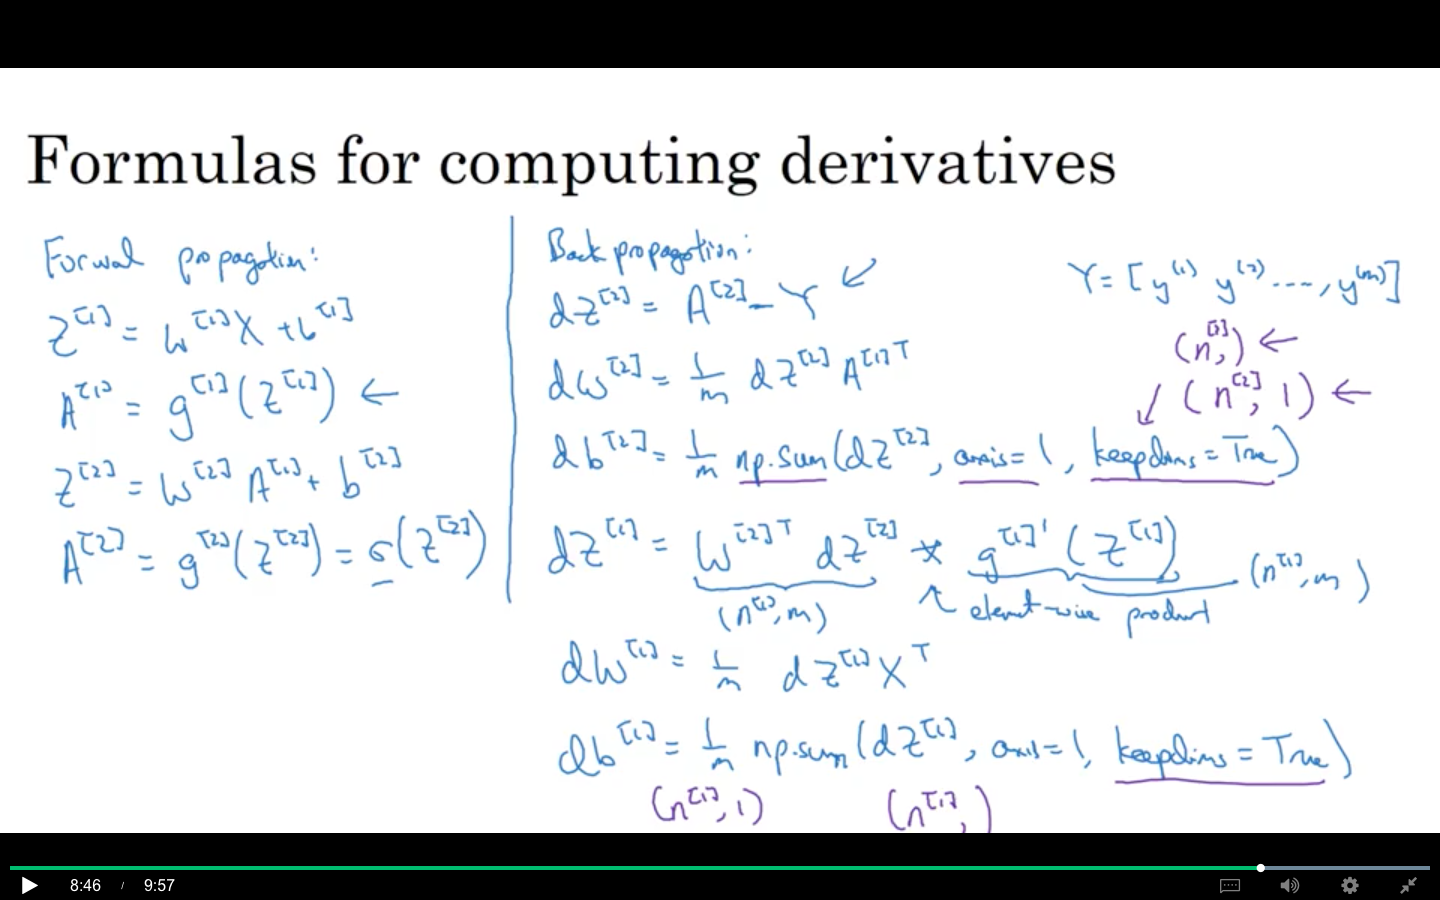 Formulas for computing derivatives
Forward propagation:
Z^[1] = W^[1]X + b^[1]
A^[1] = g^[1](Z^[1]) ←
Z^[2] = W^[2] A^[1] + b^[2]
A^[2] = g^[2](Z^[2]) = σ(Z^[2])
Back propagation:
dZ^[2] = A^[2] - Y ↙
dW^[2] = 1/m dZ^[2] A^[1]T
db^[2] = 1/m np.sum(dZ^[2], axis=1, keepdims=True)
dZ^[1] = W^[2]T dZ^[2] * g^[1]'(Z^[1])
(n^[1], m)
↖ element-wise product
(n^[1], m)
dW^[1] = 1/m dZ^[1] X^T
db^[1] = 1/m np.sum(dZ^[1], axis=1, keepdims=True)
(n^[1], 1) (n^[1],)
Y = [y^(1) y^(2) ..., y^(m)]
(n,) ←
↙ (n^[2], 1) ←
8:46 / 9:57